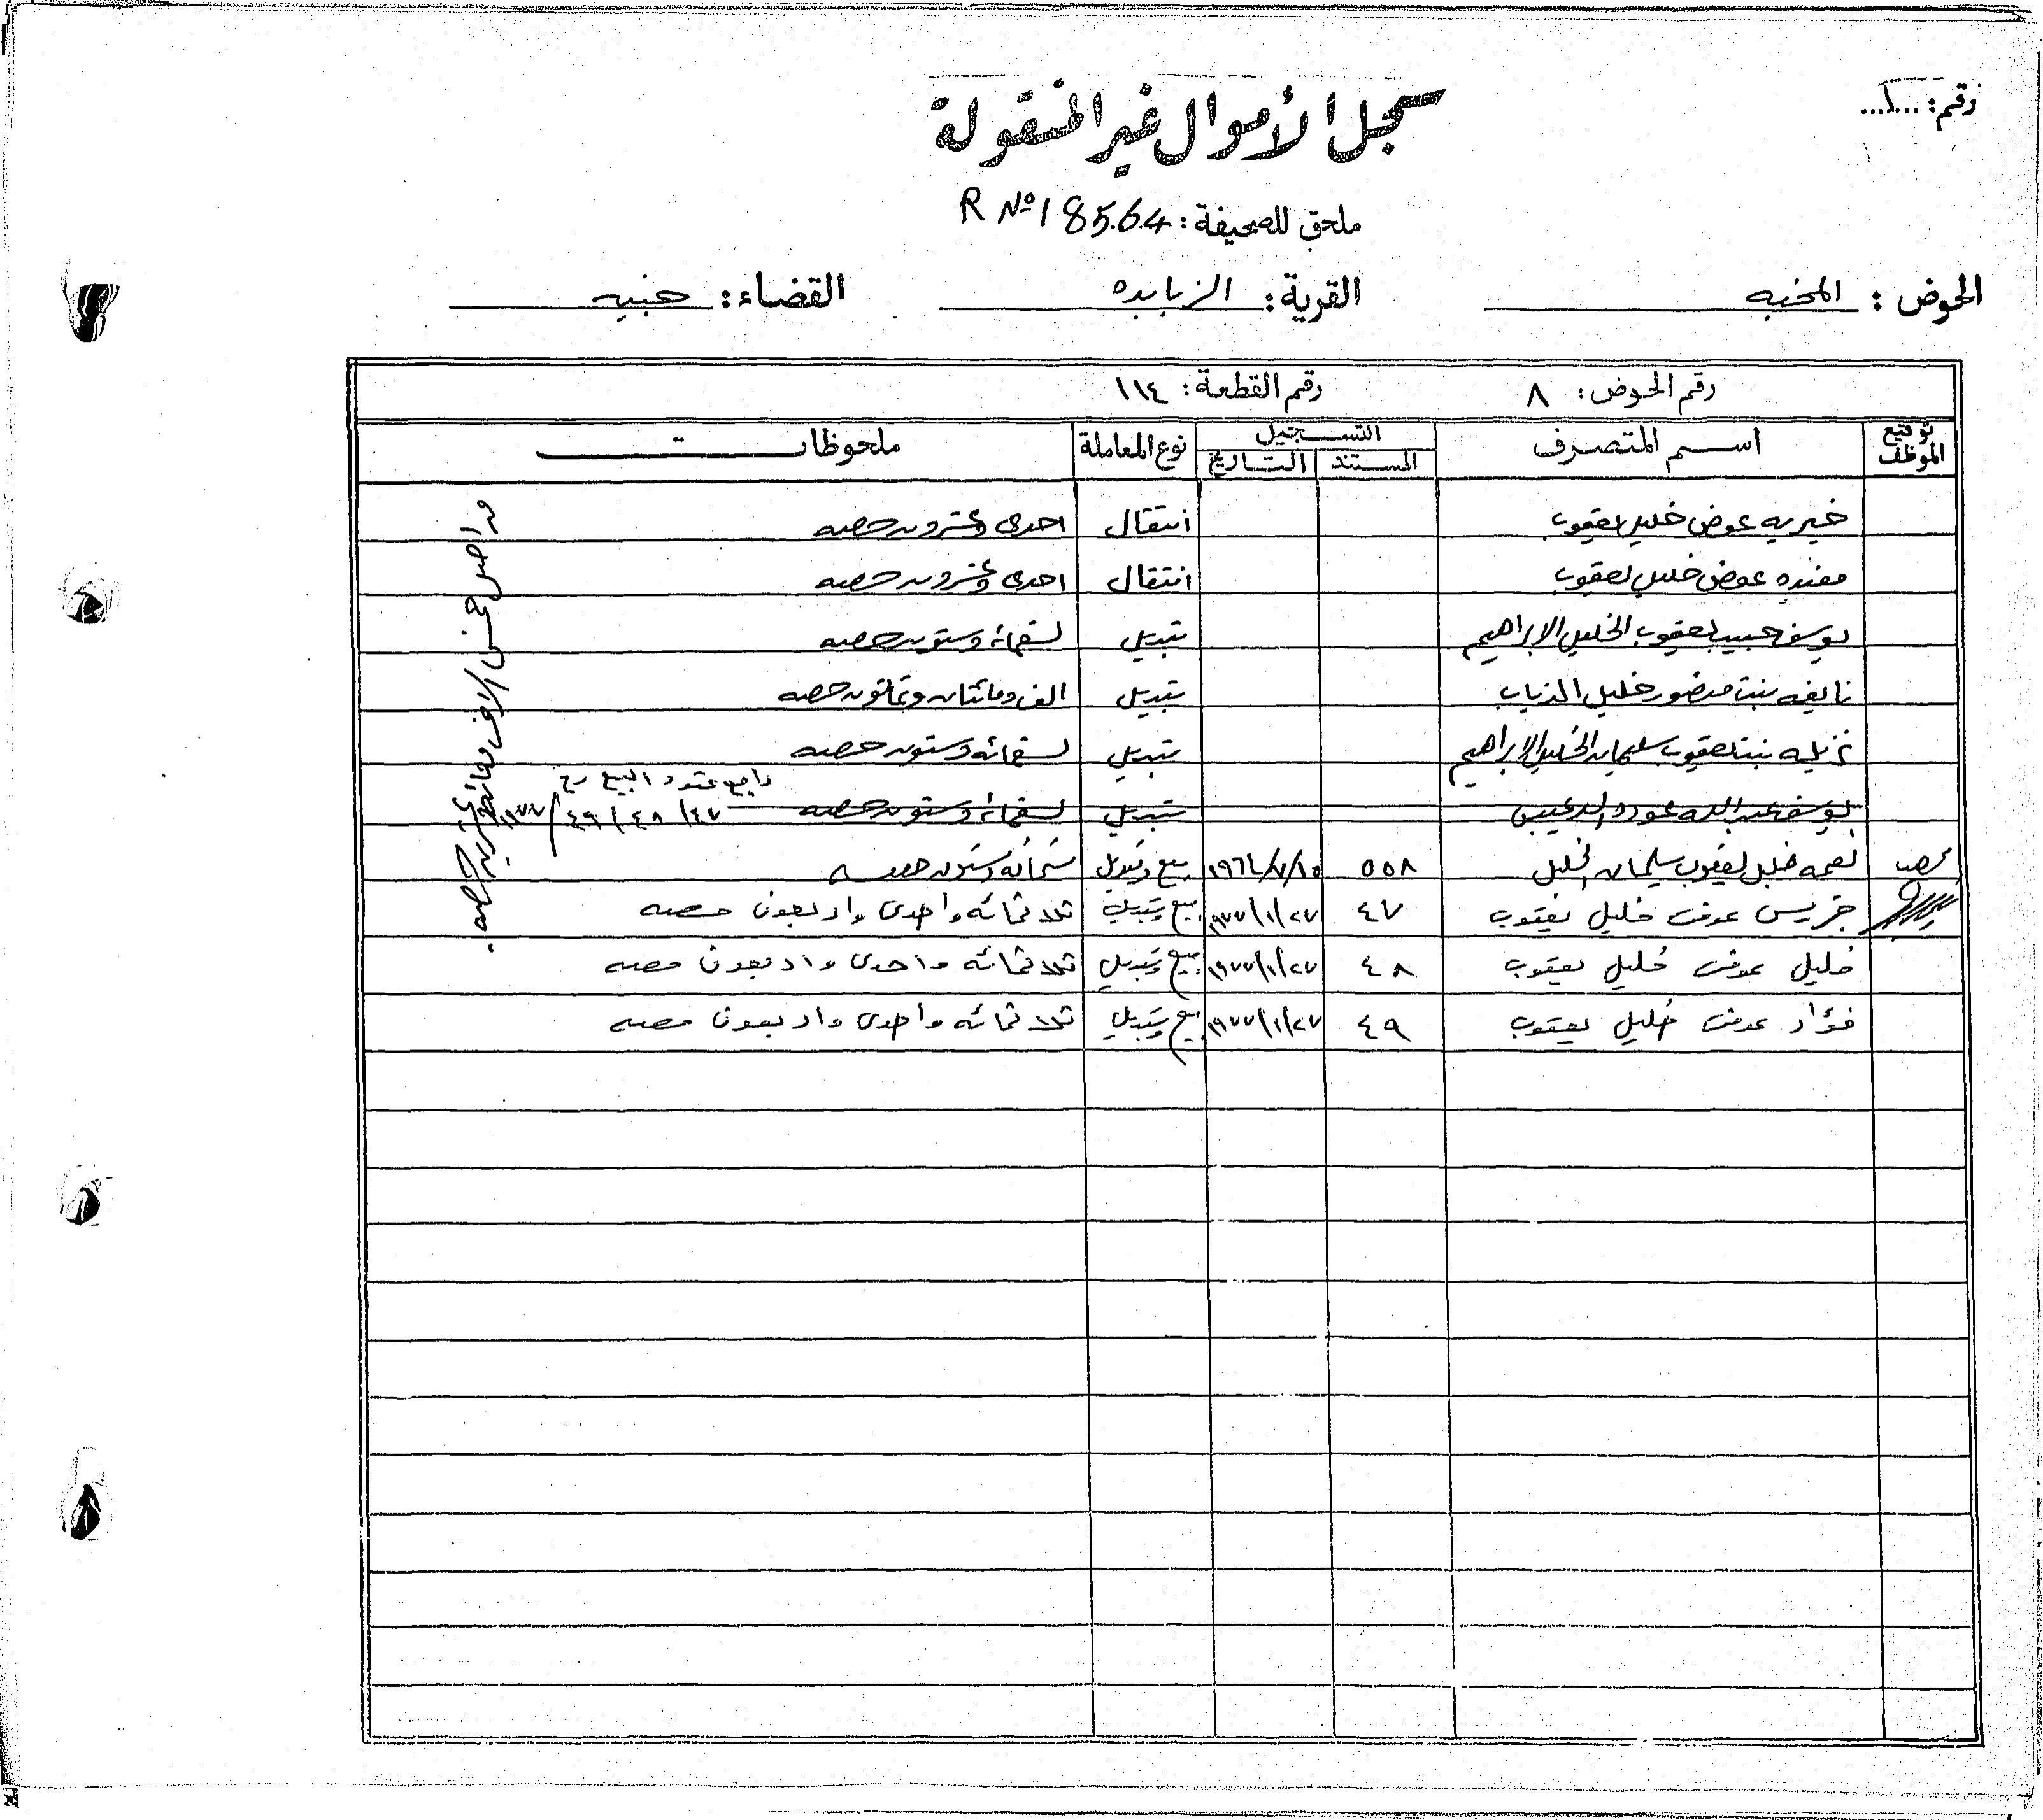 رقم: ...١...
سجل الأموال غير المنقولة
ملحق للصحيفة: R Nº 18564
الحوض: المخبه القرية: الزبابده القضاء: جنين
رقم الحوض: ٨ رقم القطعة: ١١٤
توقيع الموظف اسم المتصرف التسجيل نوع المعاملة ملحوظات
المستند التاريخ
خيريه عوض خليل يعقوب انتقال احدى وعشرون حصه
مفيده عوض خليل يعقوب انتقال احدى وعشرون حصه
يوسف حبيب يعقوب الخليل الابراهيم تبديل تسعمائة وستون حصه
نايفه بنت منصور خليل الذياب تبديل الف ومائتان وثمانون حصه
نزيله بنت يعقوب سليمان الخليل الابراهيم تبديل تسعمائه وستون حصه
راجع عقود البيع رقم
يوسف عبدالله عوده تبديل تسعمائة وستون حصه ٤٧/٤٨/٤٩/١٩٧٧
نعمه خليل يعقوب سليمان الخليل ٥٥٨ بيع وتبديل ستمائة وستون حصه
جريس عوض خليل يعقوب ٤٧ ١٩٧٧/١/٢٧ بيع وتبديل ثلاثمائه واحدى واربعون حصه
خليل عوض خليل يعقوب ٤٨ ١٩٧٧/١/٢٧ بيع وتبديل ثلاثمائه واحدى واربعون حصه
فؤاد عوض خليل يعقوب ٤٩ ١٩٧٧/١/٢٧ بيع وتبديل ثلاثمائه واحدى واربعون حصه
من اصل خمس الاف حصه.